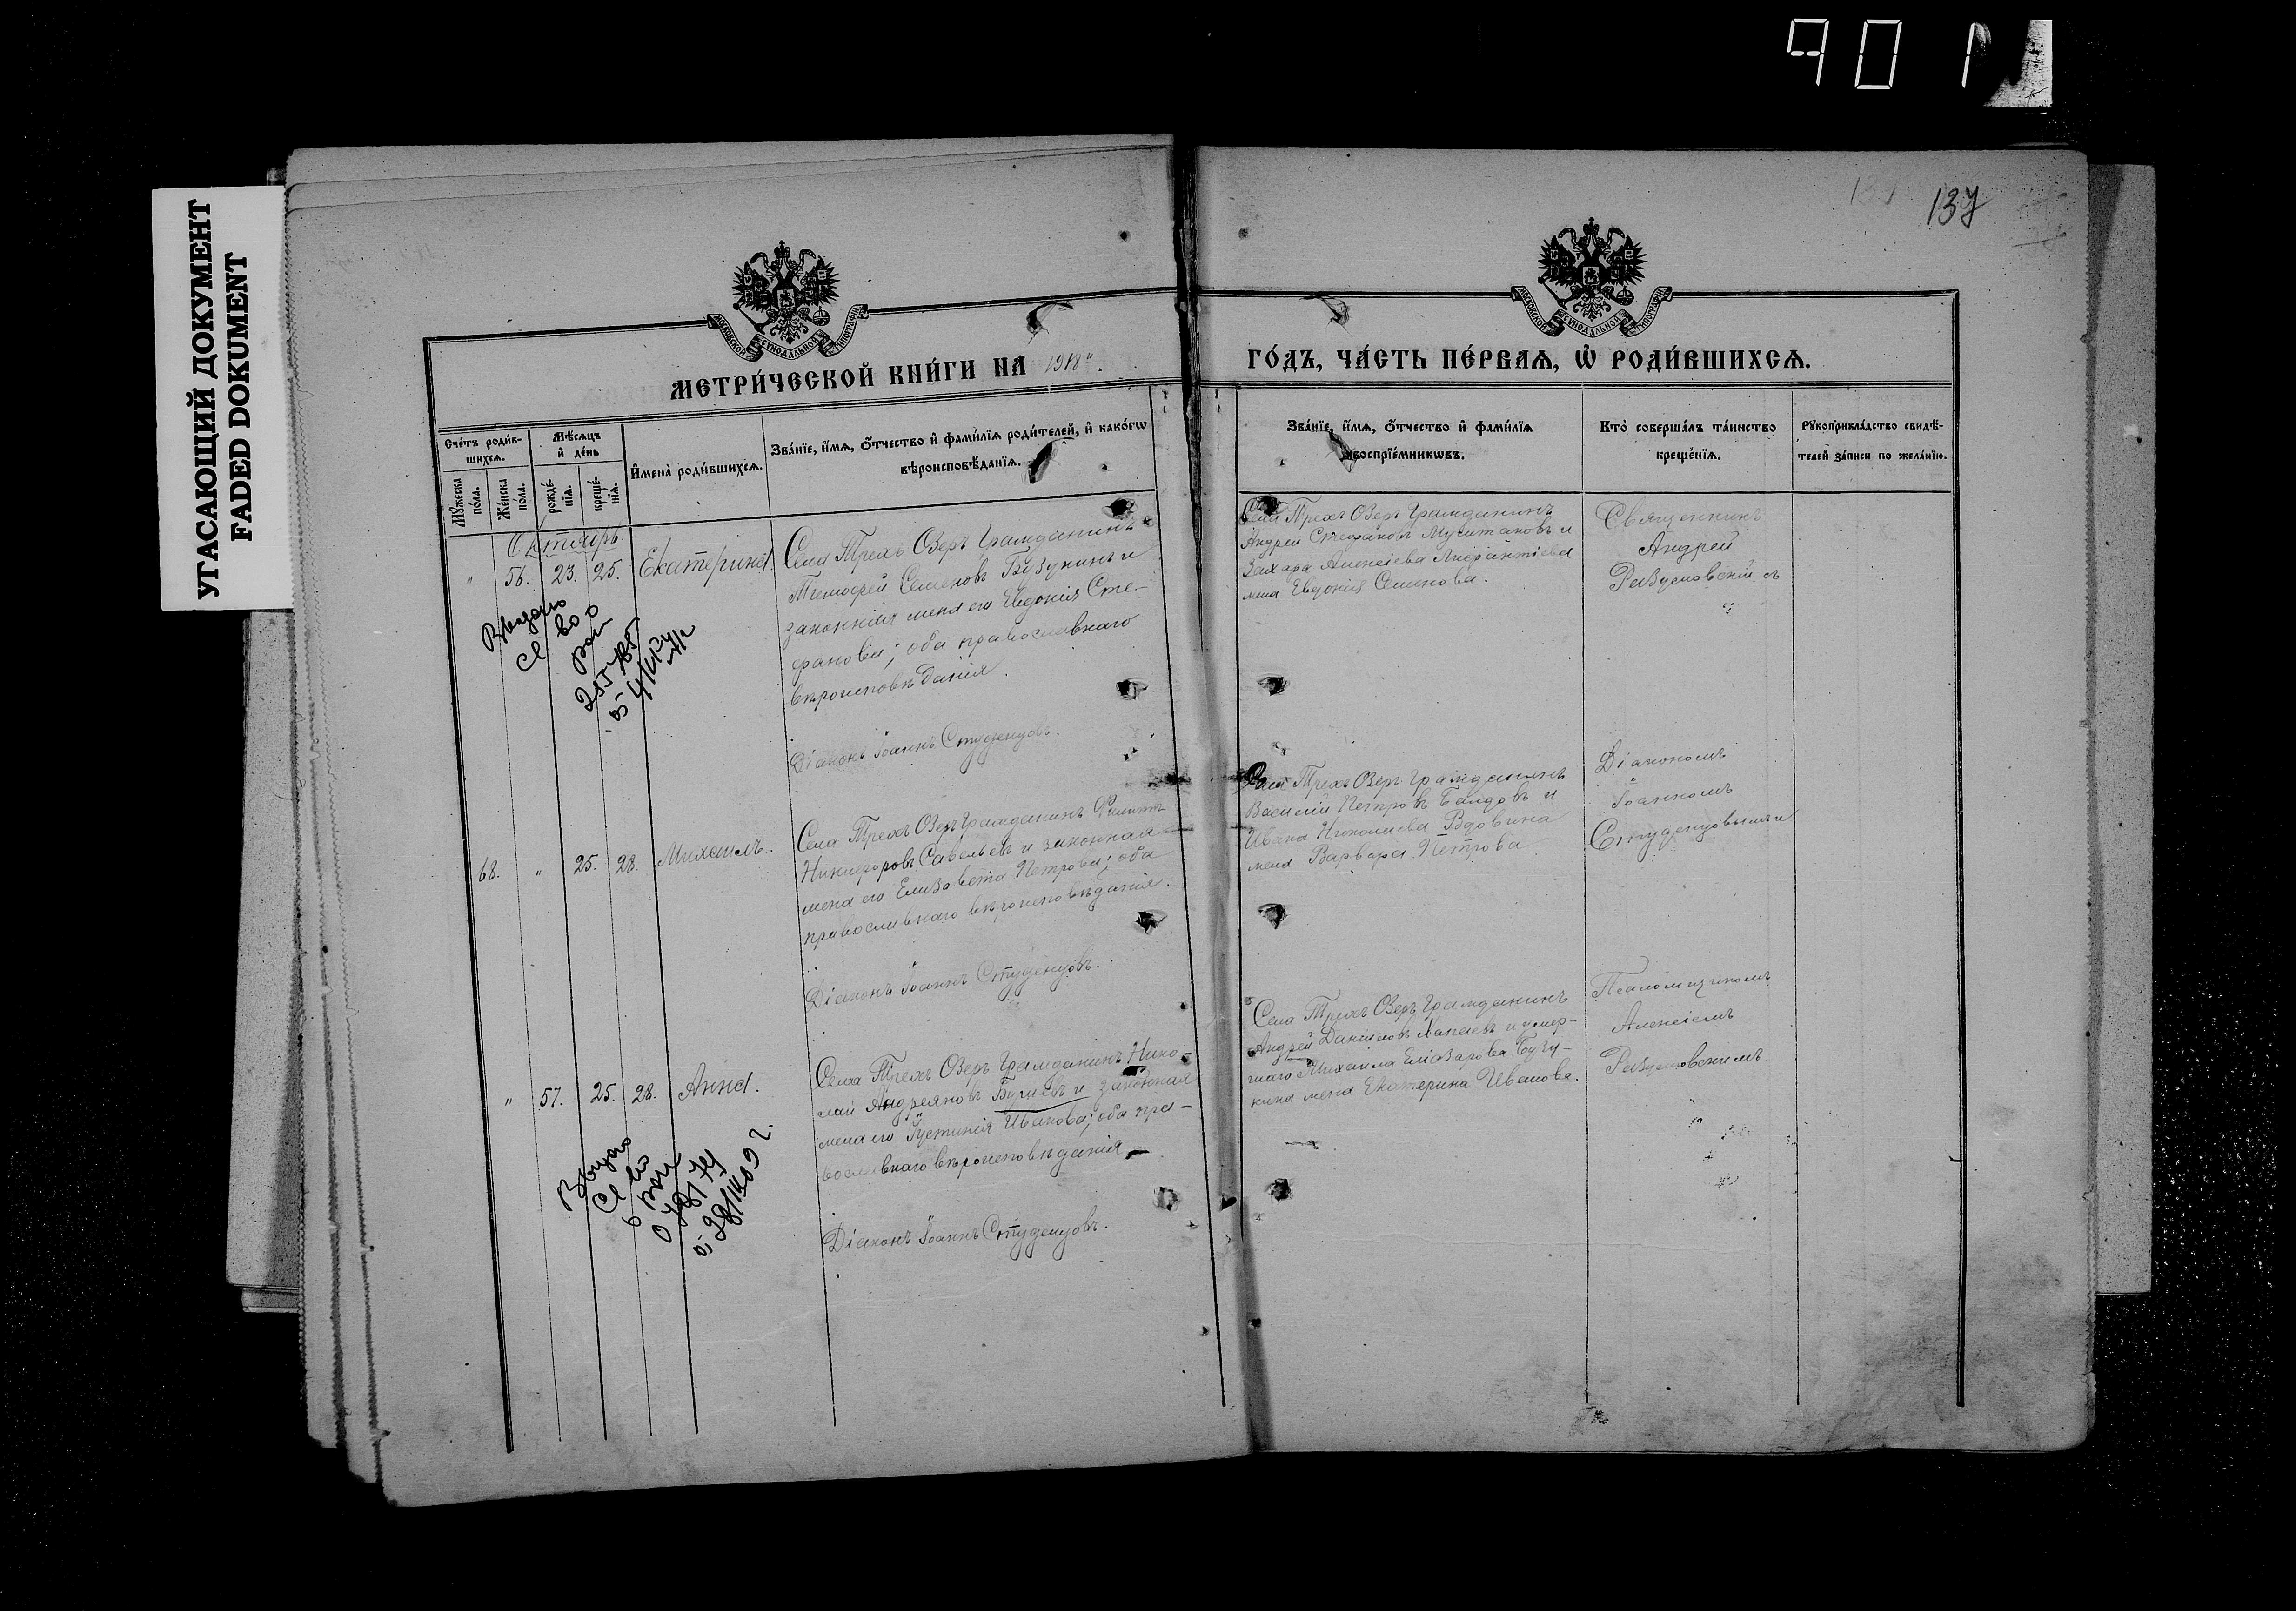 901
УГАСАЮЩИЙ ДОКУМЕНТ
FADED DOKUMENT
137
МОСКОВСКОЙ СУНОДАЛЬНОЙ ТИПОГРАФІИ
МОСКОВСКОЙ СУНОДАЛЬНОЙ ТИПОГРАФІИ
МЕТРИ́ЧЕСКОЙ КНИ́ГИ НА 1918 ГО́ДЪ, ЧА́СТЬ ПЕ́РВАѦ, Ѡ҆ РОДИ́ВШИХСѦ.
Сче́тъ роди́в-
шихсѧ.
Мѣ́сѧцъ
и҆ де́нь
Мꙋ́жеска
по́ла.
Же́нска
по́ла.
рожде́-
нїѧ.
креще́-
нїѧ.
И҆мена̀ роди́вшихсѧ.
Зва́нїе, и҆́мѧ, ѻ҆́тчество и҆ фами́лїѧ роди́телей, и҆ како́гѡ
вѣроисповѣ́данїѧ.
Зва́нїе, и҆́мѧ, ѻ҆́тчество и҆ фами́лїѧ
воспрїе́мникѡвъ.
Кто̀ соверша́лъ та́инство
креще́нїѧ.
Рꙋкоприкла́дство свидѣ́-
телей за́писи по жела́нїю.
Октябрь
" 56. 23. 25. Екатерина.
Села Трехъ Озеръ гражданинъ
Тимофей Семеновъ Бузукинъ и
законная жена его Евдокія Сте-
фанова; оба православнаго
вѣроисповѣданія.
Діаконъ Іоаннъ Студенцовъ.
Села Трехъ Озеръ гражданинъ
Андрей Стефановъ и
Захара Алексіева
жена Евдокія Семенова.
Священникъ
Андрей
Разумовскій съ
68. " 25. 28. Михаилъ.
Села Трехъ Озеръ гражданинъ Филиппъ
Никифоровъ Савельевъ и законная
жена его Елизавета Петрова; оба
православнаго вѣроисповѣданія.
Діаконъ Іоаннъ Студенцовъ.
Села Трехъ Озеръ гражданинъ
Василій Петровъ и
Ивана Николаева Вдовина
жена Варвара Петрова.
Діакономъ
Іоанномъ
Студенцовымъ и
" 57. 25. 28. Анна.
Села Трехъ Озеръ гражданинъ Нико-
лай Андреяновъ и законная
жена его Іустинія Иванова; оба пра-
вославнаго вѣроисповѣданія.
Діаконъ Іоаннъ Студенцовъ.
Села Трехъ Озеръ гражданинъ
Андрей Даниловъ и умер-
шаго Михаила Елизарова Бузу-
кина жена Екатерина Иванова.
Псаломщикомъ
Алексіемъ
Разумовскимъ.